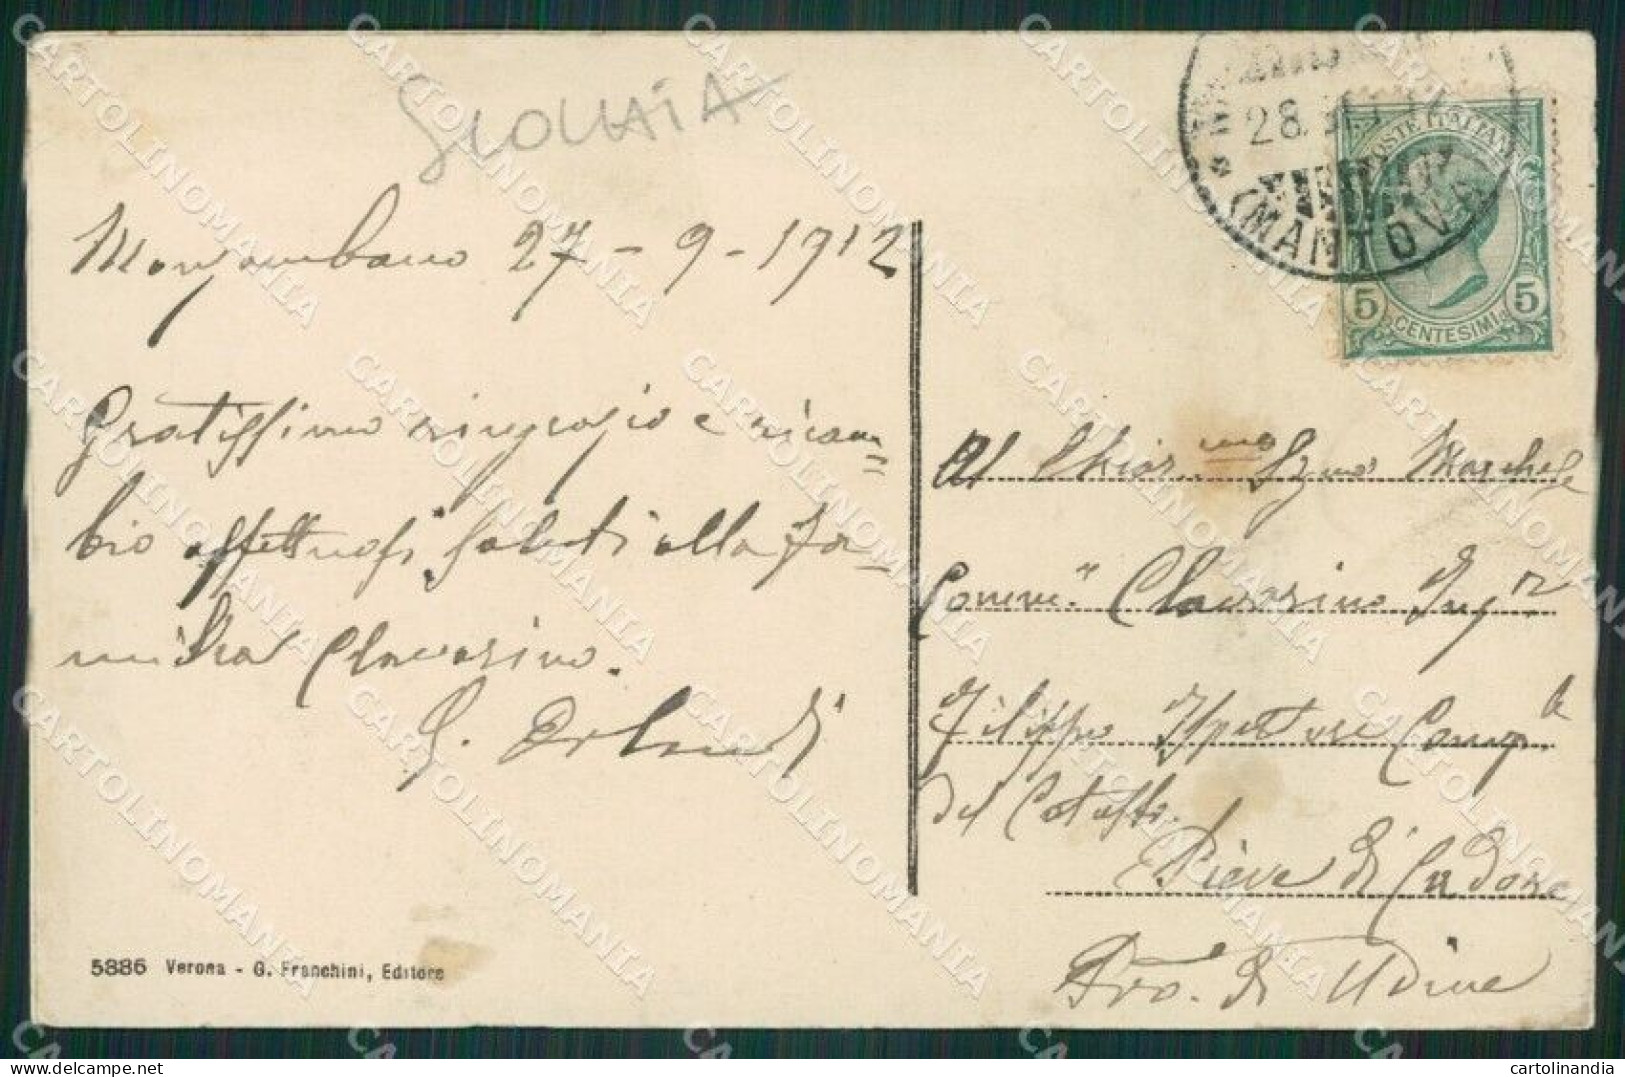 Monzambano 27-9-1912
Gratissimo ringrazio e ricam=
bio affettuosi saluti alla fa-
miglia Clavarino.
G. Orlandi
5886 Verona - G. Franchini, Editore
28
(MANTOVA)
POSTE ITALIANE
5 CENTESIMI 5
Al Chiar.mo Signor Marchese
Comm. Clavarino Ing.r
Filippo Ispettore Comp.le
del Catasto.
Pieve di Cadore
Prov. di Udine
CARTOLINOMANIA
cartolinandia